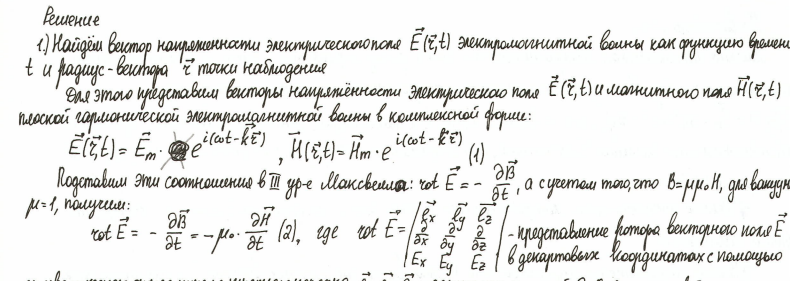 Решение
1.) Найдём вектор напряженности электрического поля E⃗(r⃗,t) электромагнитной волны как функцию времени
t и радиус-вектора r⃗ точки наблюдения
Для этого представим векторы напряжённости электрического поля E⃗(r⃗,t) и магнитного поля H⃗(r⃗,t)
плоской гармонической электромагнитной волны в комплексной форме:
E⃗(r⃗,t) = E⃗m · e^i(ωt-k⃗r⃗) , H⃗(r⃗,t) = H⃗m · e^i(ωt-k⃗r⃗) (1)
Подставим эти соотношения в III ур-е Максвелла: rot E⃗ = - ∂B⃗/∂t, а с учетом того, что B=μμ₀H, для вакуума
μ=1, получим:
rot E⃗ = - ∂B⃗/∂t = -μ₀ · ∂H⃗/∂t (2), где rot E⃗ = |e⃗x e⃗y e⃗z; ∂/∂x ∂/∂y ∂/∂z; Ex Ey Ez| - представление ротора векторного поля E⃗
в декартовых координатах с помощью